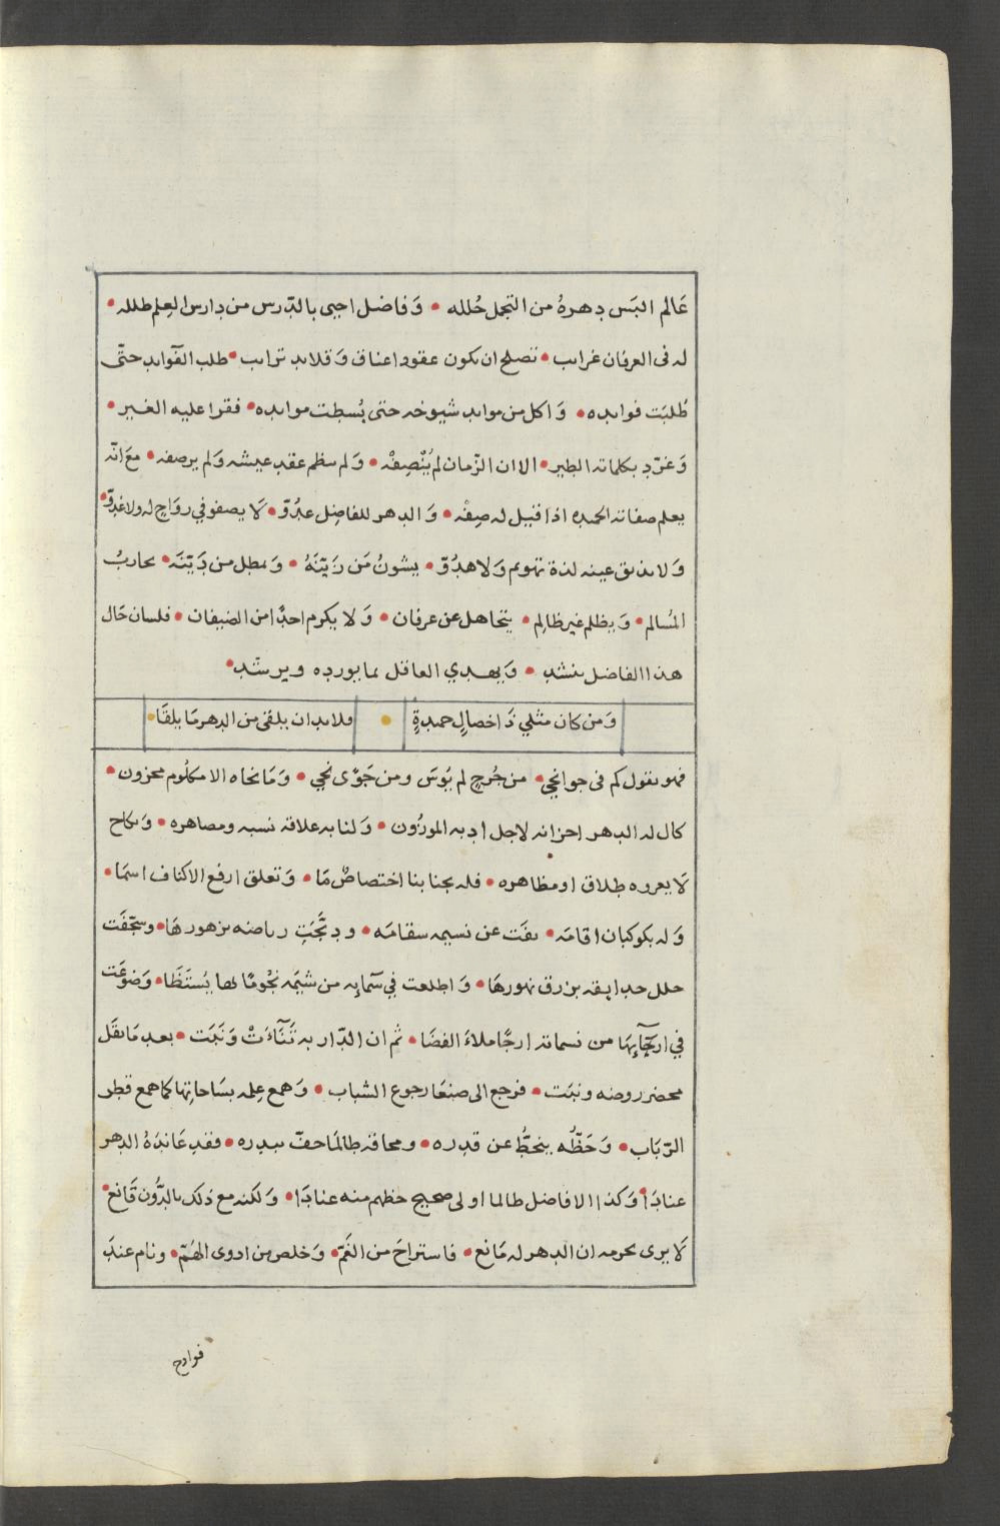 عَالم البَس دهرهُ من التجمل حُلله • وَفاضل احيى بالدّرس من دارس العِلم طلله •
له فى العرفان غرايب • تصلح ان تكون عقود اعناق وَقلايد ترايب • طلب الفّوايد حتّى
طُلبَت فوايده • وَاكل من موايد شيوخه حتى بُسطت موايده • فقرا عليه الغير •
وَغرّد بكلماته الطير • الا ان الزّمان لم يُنْصِفْه • وَلم ينظم عقد عيشه وَلم يرصفه • معَ انّه
يعلم صفاته الحميده اذا قيل له صِفْه • وَالدهر للفاضِل عدُوّ • لَا يصفو في رَوَاحٍ له ولا غدُوّ •
وَلا يذيق عينه لذة تهويم وَلا هدُوّ • يشونُ مَن زَيّنَهُ • وَيمطل من دَيّنَه • يحاربُ
المُسالم • وَيظلم غير ظالِم • يتجاهل عن عرفان • وَلا يكرم احدًا من الضيفان • فلسان حَال
هذا الفاضل ينشد • وَيهدي العاقل لما يورده ويرشد •
وَمن كان مثلي ذَا خصالٍ حميدةٍ • فلابدان يلقى من الدهر مَا يلقَا •
فهو يقول كم فى جوانحي • من جُرحٍ لم يوسَ ومن جَوًى نجي • وَمَا نجاه الا مكلُوم محزون •
كال له الدهر احزانه لاجل ادبه الموزُون • وَلنا به علاقة نسبه ومصاهره • وَنكاح
لَا يعروه طلاق او مظاهره • فله بجنابنا اختصاصٌ مَا • وَتعلق ارفع الاكناف اسمَا •
وَله بكوكبان اقامَه • نفَت عن نسيمه سقامَه • ودبَّجَتِ رياضه بزهورهَا • وسجّفَت
حلل حدايقه بزرق نهورهَا • وَاطلعت في سَمآيِه من شيمَه نجُومًا لها يُستَظَا • وَضوعَت
في ارجَآيِهَا من نسماته ارجًا ملاءَ الفضَا • ثم ان الدّار به تَنَّآءَتْ وَنَبَت • بعد مَا بقَل
محضر روضه ونبَت • فرجع الى صنعَا رجوع الشباب • وَهمع عِلمه بسَاحاتِها كما همع قطر
الرّبَاب • وَحَظّه ينحَطُّ عن قدره • ومحاقه طالمَا حفّ ببدره • فقد عَاندَهُ الدهر
عنادَا • وَكذا الافاضل طالما اولى صحيح حظهم منه عنادَا • وَلكنه مع ذلك بالدُّون قَانع •
لَا يرى بحرمه ان الدهر له مَانع • فاستراحَ من الغَمّ • وَخلص من ادوى الهَمّ • ونام عندَ
فوادح